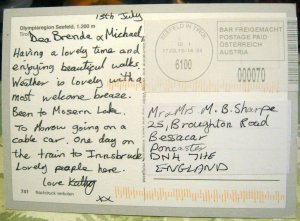 Olympiaregion Seefeld, 1.200 m
13th July
Dear Brenda & Michael,
Having a lovely time and
enjoying beautiful walks.
Weather is lovely with a
most welcome breeze.
Been to Mosern Lake.
To Morrow going on a
cable car. One day on
the train to Innsbruck.
Lovely people here.
Love Kathy
xx
SEEFELD IN TIROL
6100
BAR FREIGEMACHT
POSTAGE PAID
ÖSTERREICH
AUSTRIA
000070
Mr & Mrs M. B. Sharpe
25, Broughton Road
Besacar
Doncaster
DN4 7HE
ENGLAND
741 Nachdruck verboten